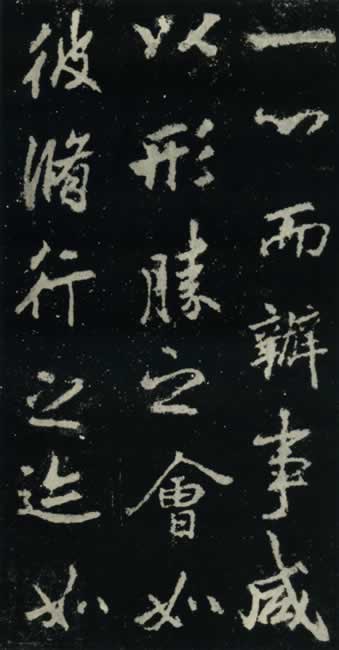 一心而辦事咸
以形勝之會如
彼脩行之迹如